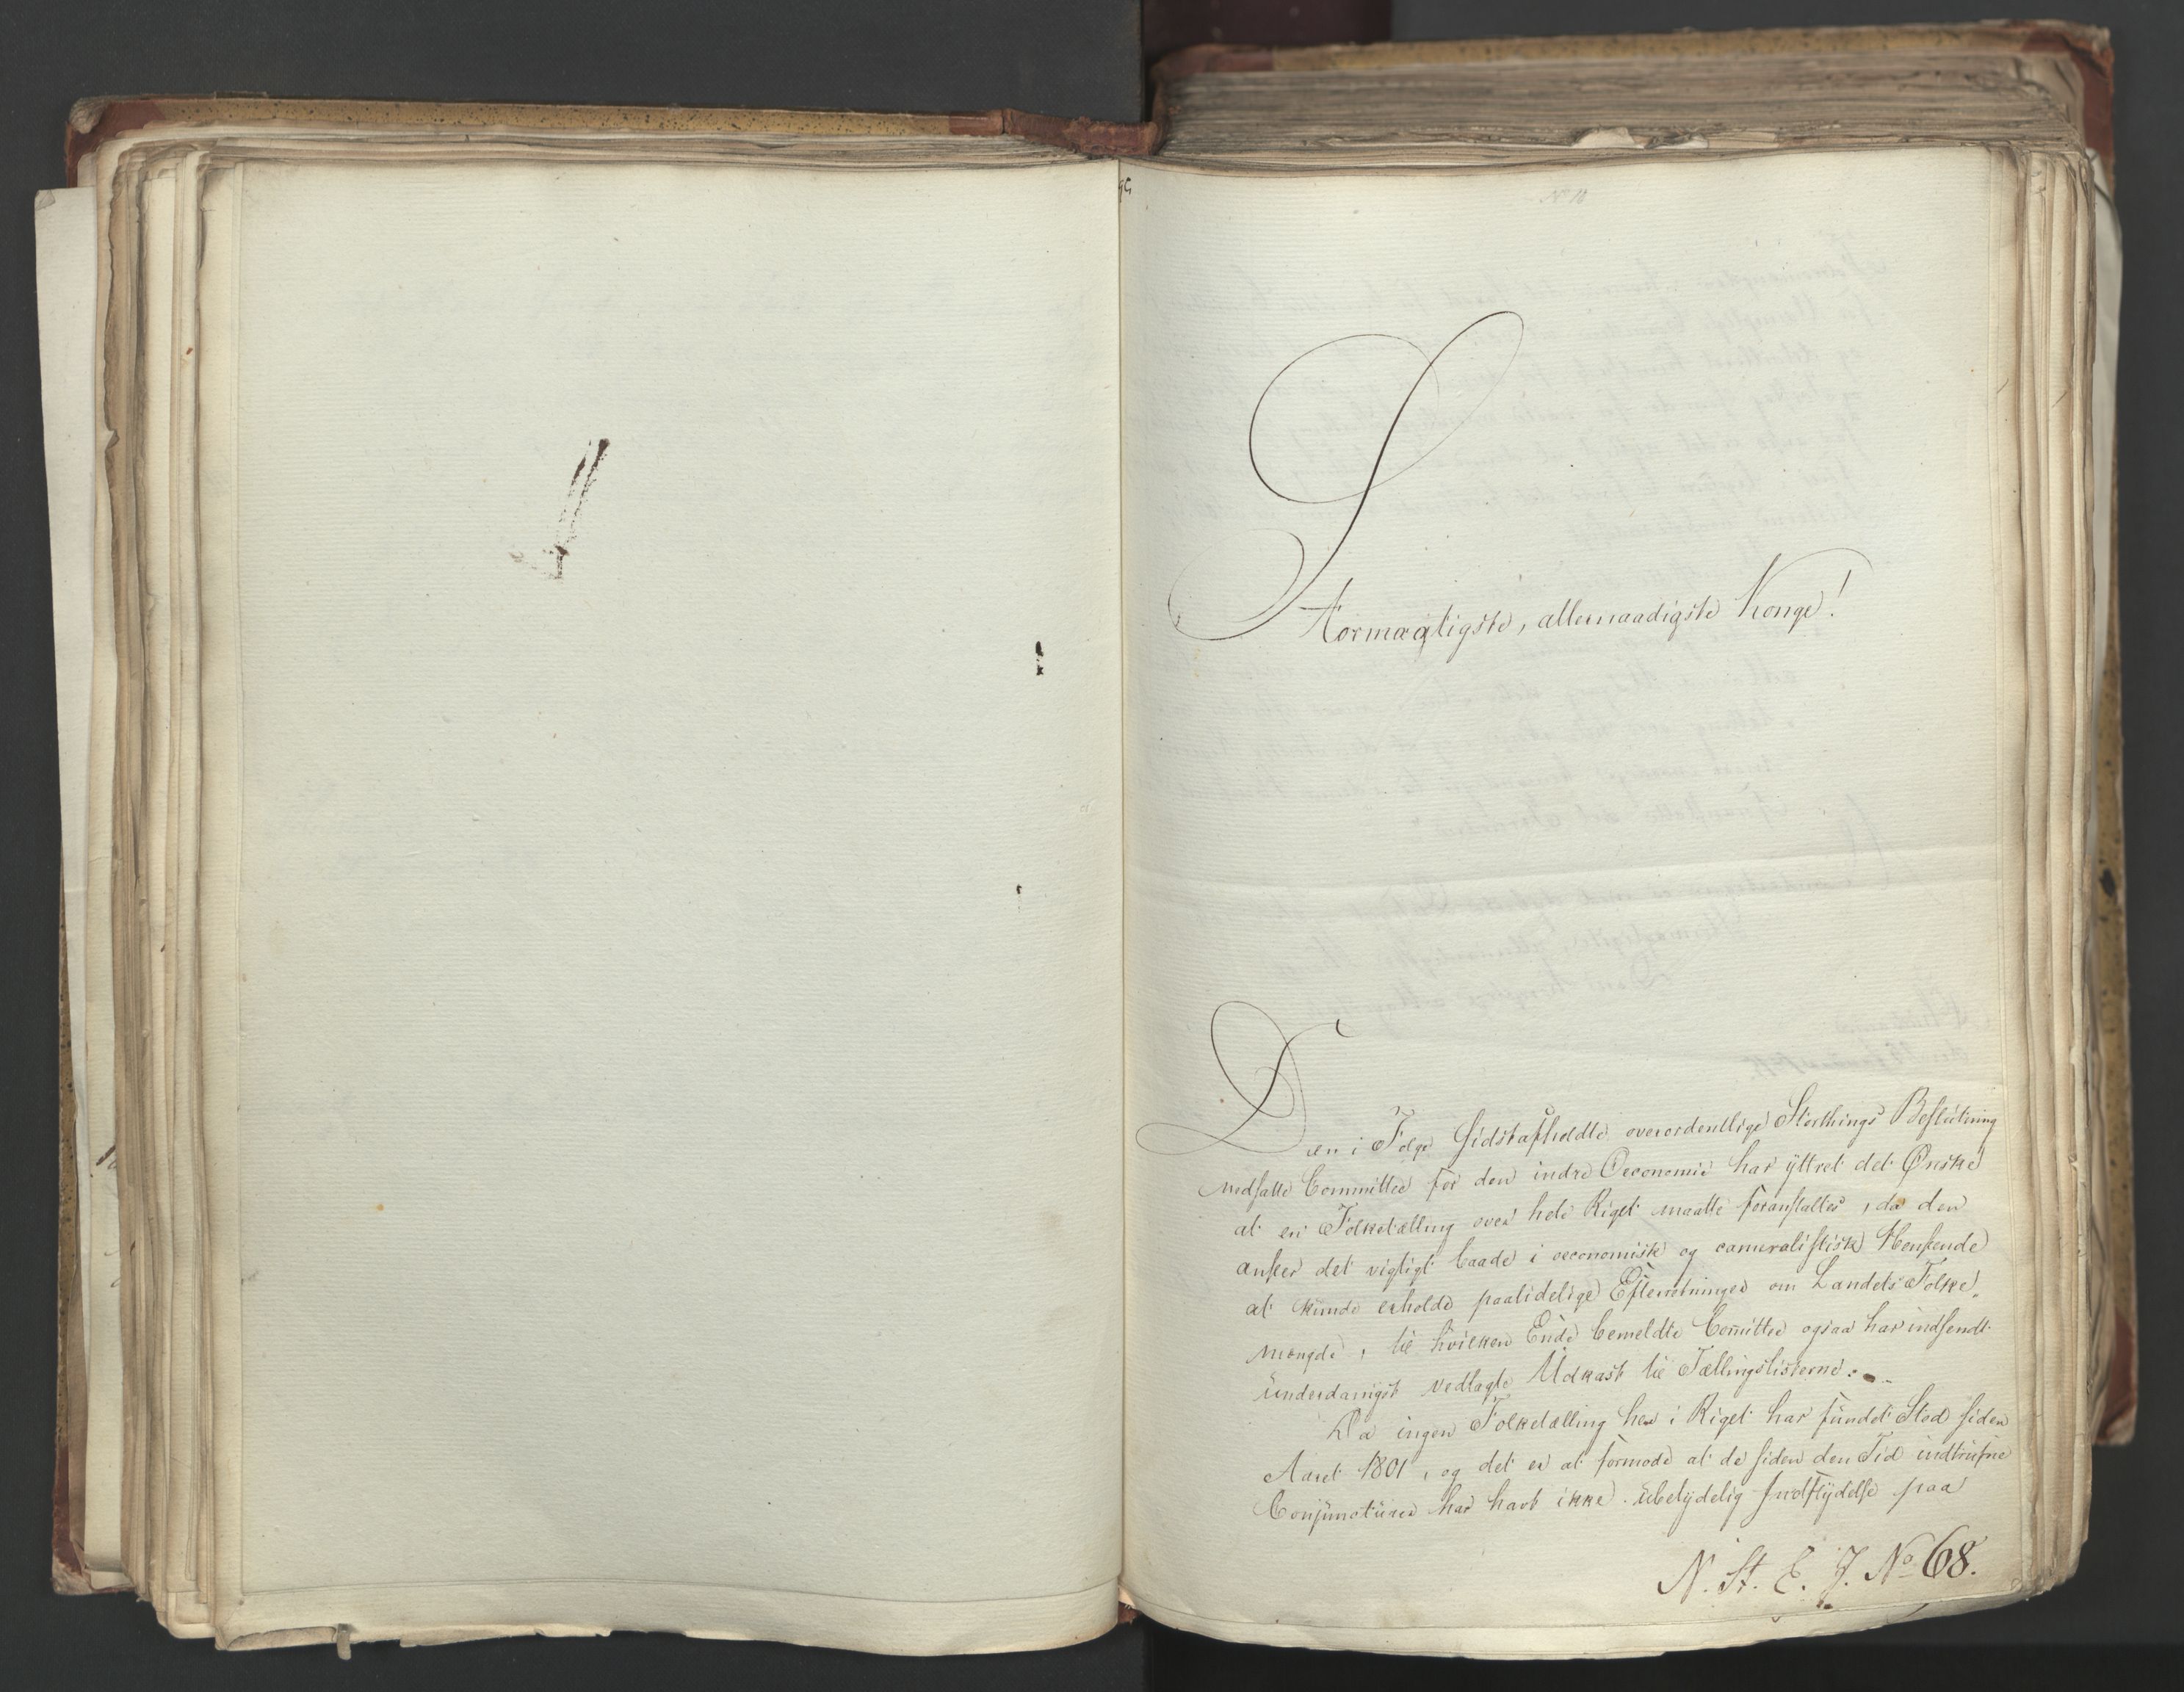 No 18
Stormægtigste, allernaadigste Konge!
Den i Følge sidstafholdte overordentlige Storthings Beslutning
nedsatte Committee for den indre Oeconomie har yttret det Ønske
at en Folketælling over hele Riget maatte foranstaltes, da den
anseer det vigtigt baade i oeconomisk og cameralistisk Henseende
at kunde erholde paalidelige Efterretninger om Landets Folke-
mængde, til hvilken Ende bemeldte Com̄ittee ogsaa har indsendt
underdanigst vedlagte Udkast til Tællingslisterne.
Da ingen Folketælling her i Riget har fundet Sted siden
Aaret 1801, og det er at formode at de siden den Tid indtrufne
Conjuncturer har havt ikke ubetydelig Indflydelse paa
N. St. E. J. No 68.